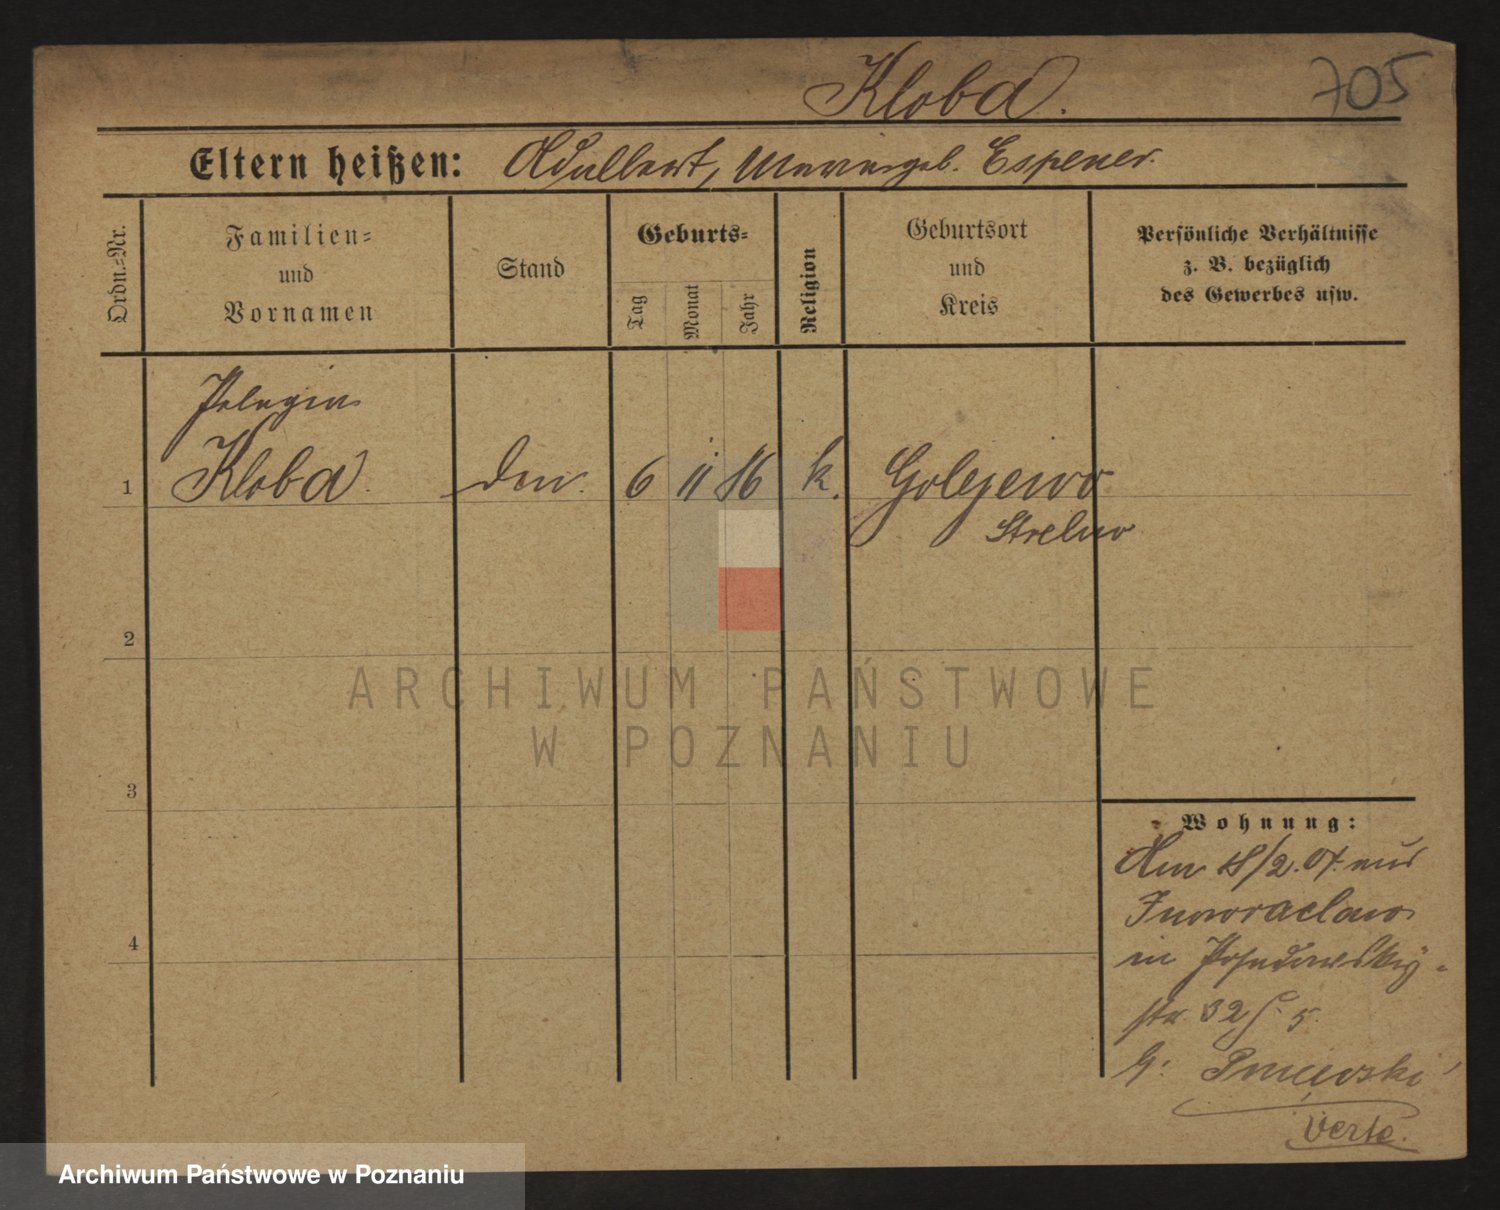 Kloba.
705
Eltern heißen: Adalbert, Maria geb. Espener.
Ordn.=Nr.
Familien=
und
Vornamen
Stand
Geburts=
Tag
Monat
Jahr
Religion
Geburtsort
und
Kreis
Persönliche Verhältnisse
z. B. bezüglich
des Gewerbes usw.
Pelagia
1 Kloba. 6 11 86 k. Golejewo
Strelno
2
3
4
Wohnung:
Am 18/2. 07. aus
Inowraclaw
in
str. 32
Verte.
ARCHIWUM PAŃSTWOWE
W POZNANIU
Archiwum Państwowe w Poznaniu